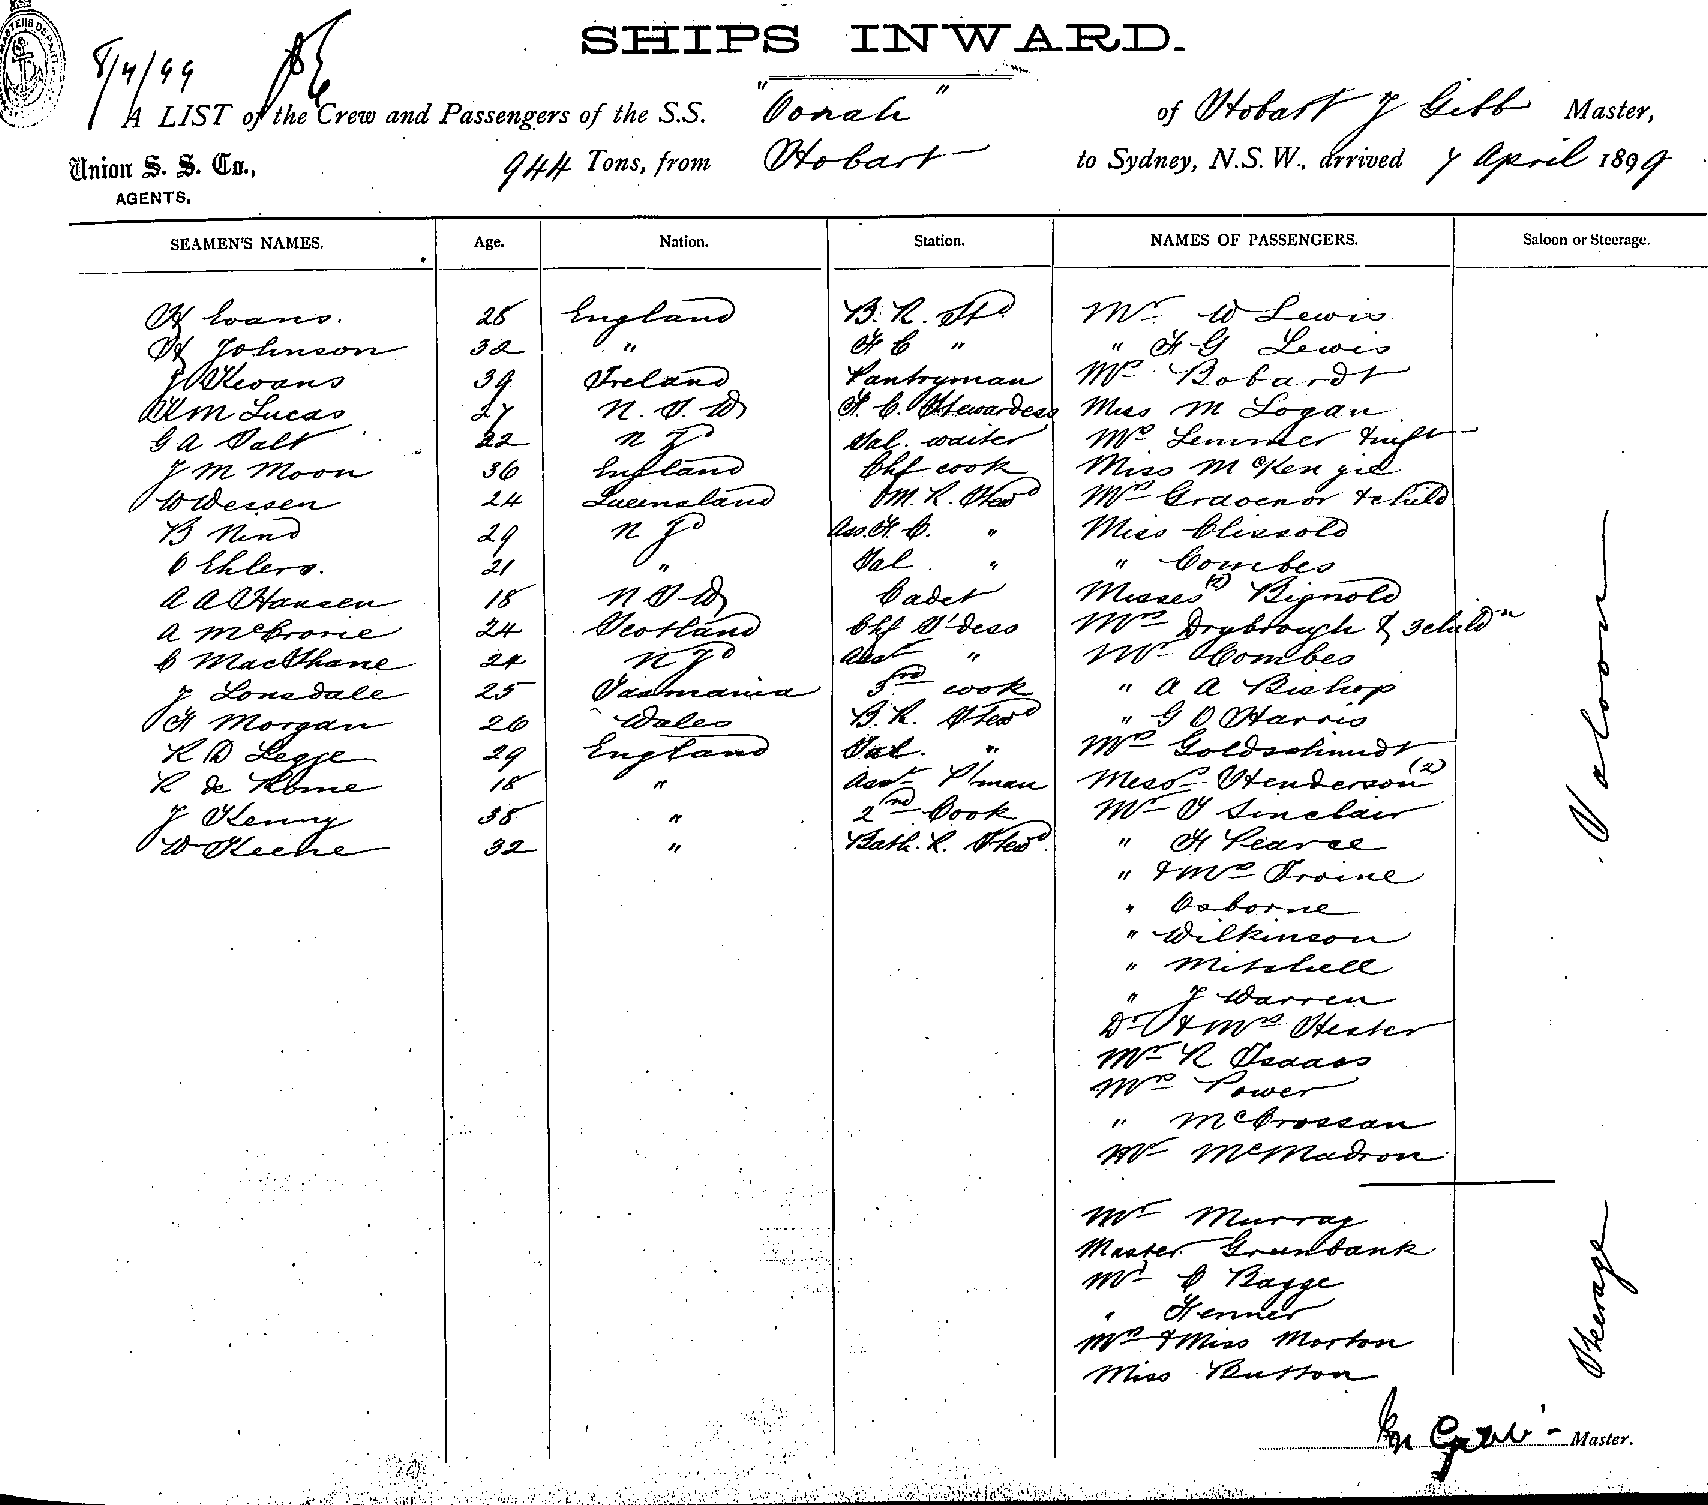 SHIPS INWARD.
8/4/99
A LIST of the Crew and Passengers of the S.S. "Oonah" of Hobart J Gibb Master,
Union S. S. Co., 944 Tons, from Hobart to Sydney, N.S.W., arrived 7 April 1899
AGENTS.
SEAMEN'S NAMES. Age. Nation. Station. NAMES OF PASSENGERS. Saloon or Steerage.
H Evans. 28 England B. R. Std Mr W Lewis
H Johnson 32 " F C " " F G Lewis
J Kevans 39 Ireland Pantryman Mrs Bobardt
M Lucas 27 N. S. W F. C. Stewardess Miss M Logan
G A Salt 22 N Zd Sal. waiter Mrs Lemmer & inft
J M Moon 36 England Chf cook Miss McKenzie
W Wessen 24 Queensland M. R. Stewd Mrs Gravenor & child
B Nind 29 N Zd Ass. F. C. " Miss Clissold
C Ehlers. 21 " Sal " " Combes
A A Hansen 18 N S W Cadet Misses (2) Bignold
A McCrorie 24 Scotland Chf S'dess Mrs Drybrough & 3 childn
C MacShane 24 N Zd Asst " Mr Combes
J Lonsdale 25 Tasmania 3rd cook " A A Bishop
H Morgan 26 Wales B. R. Stewd " G O Harris
R D Legge 29 England Sal. " Mrs Goldschmidt
R de Rome 18 " Asst P'man Messrs Henderson (2)
J Kenny 38 " 2nd Cook Mr T Sinclair
W Keene 32 " Bath. R. Stewd. " H Pearce
" & Mrs Irvine
" Osborne
" Wilkinson
" Mitchell
" J Warren
Dr & Mrs Hester
Mr R Isaacs
Mrs Power
" McCrossan
Mr McMadron
Saloon
Mr Murray
Master Greenbank
Mr C Bagge
" Fenner
Mrs & Miss Morton
Miss Button
Steerage
Gibb Master.